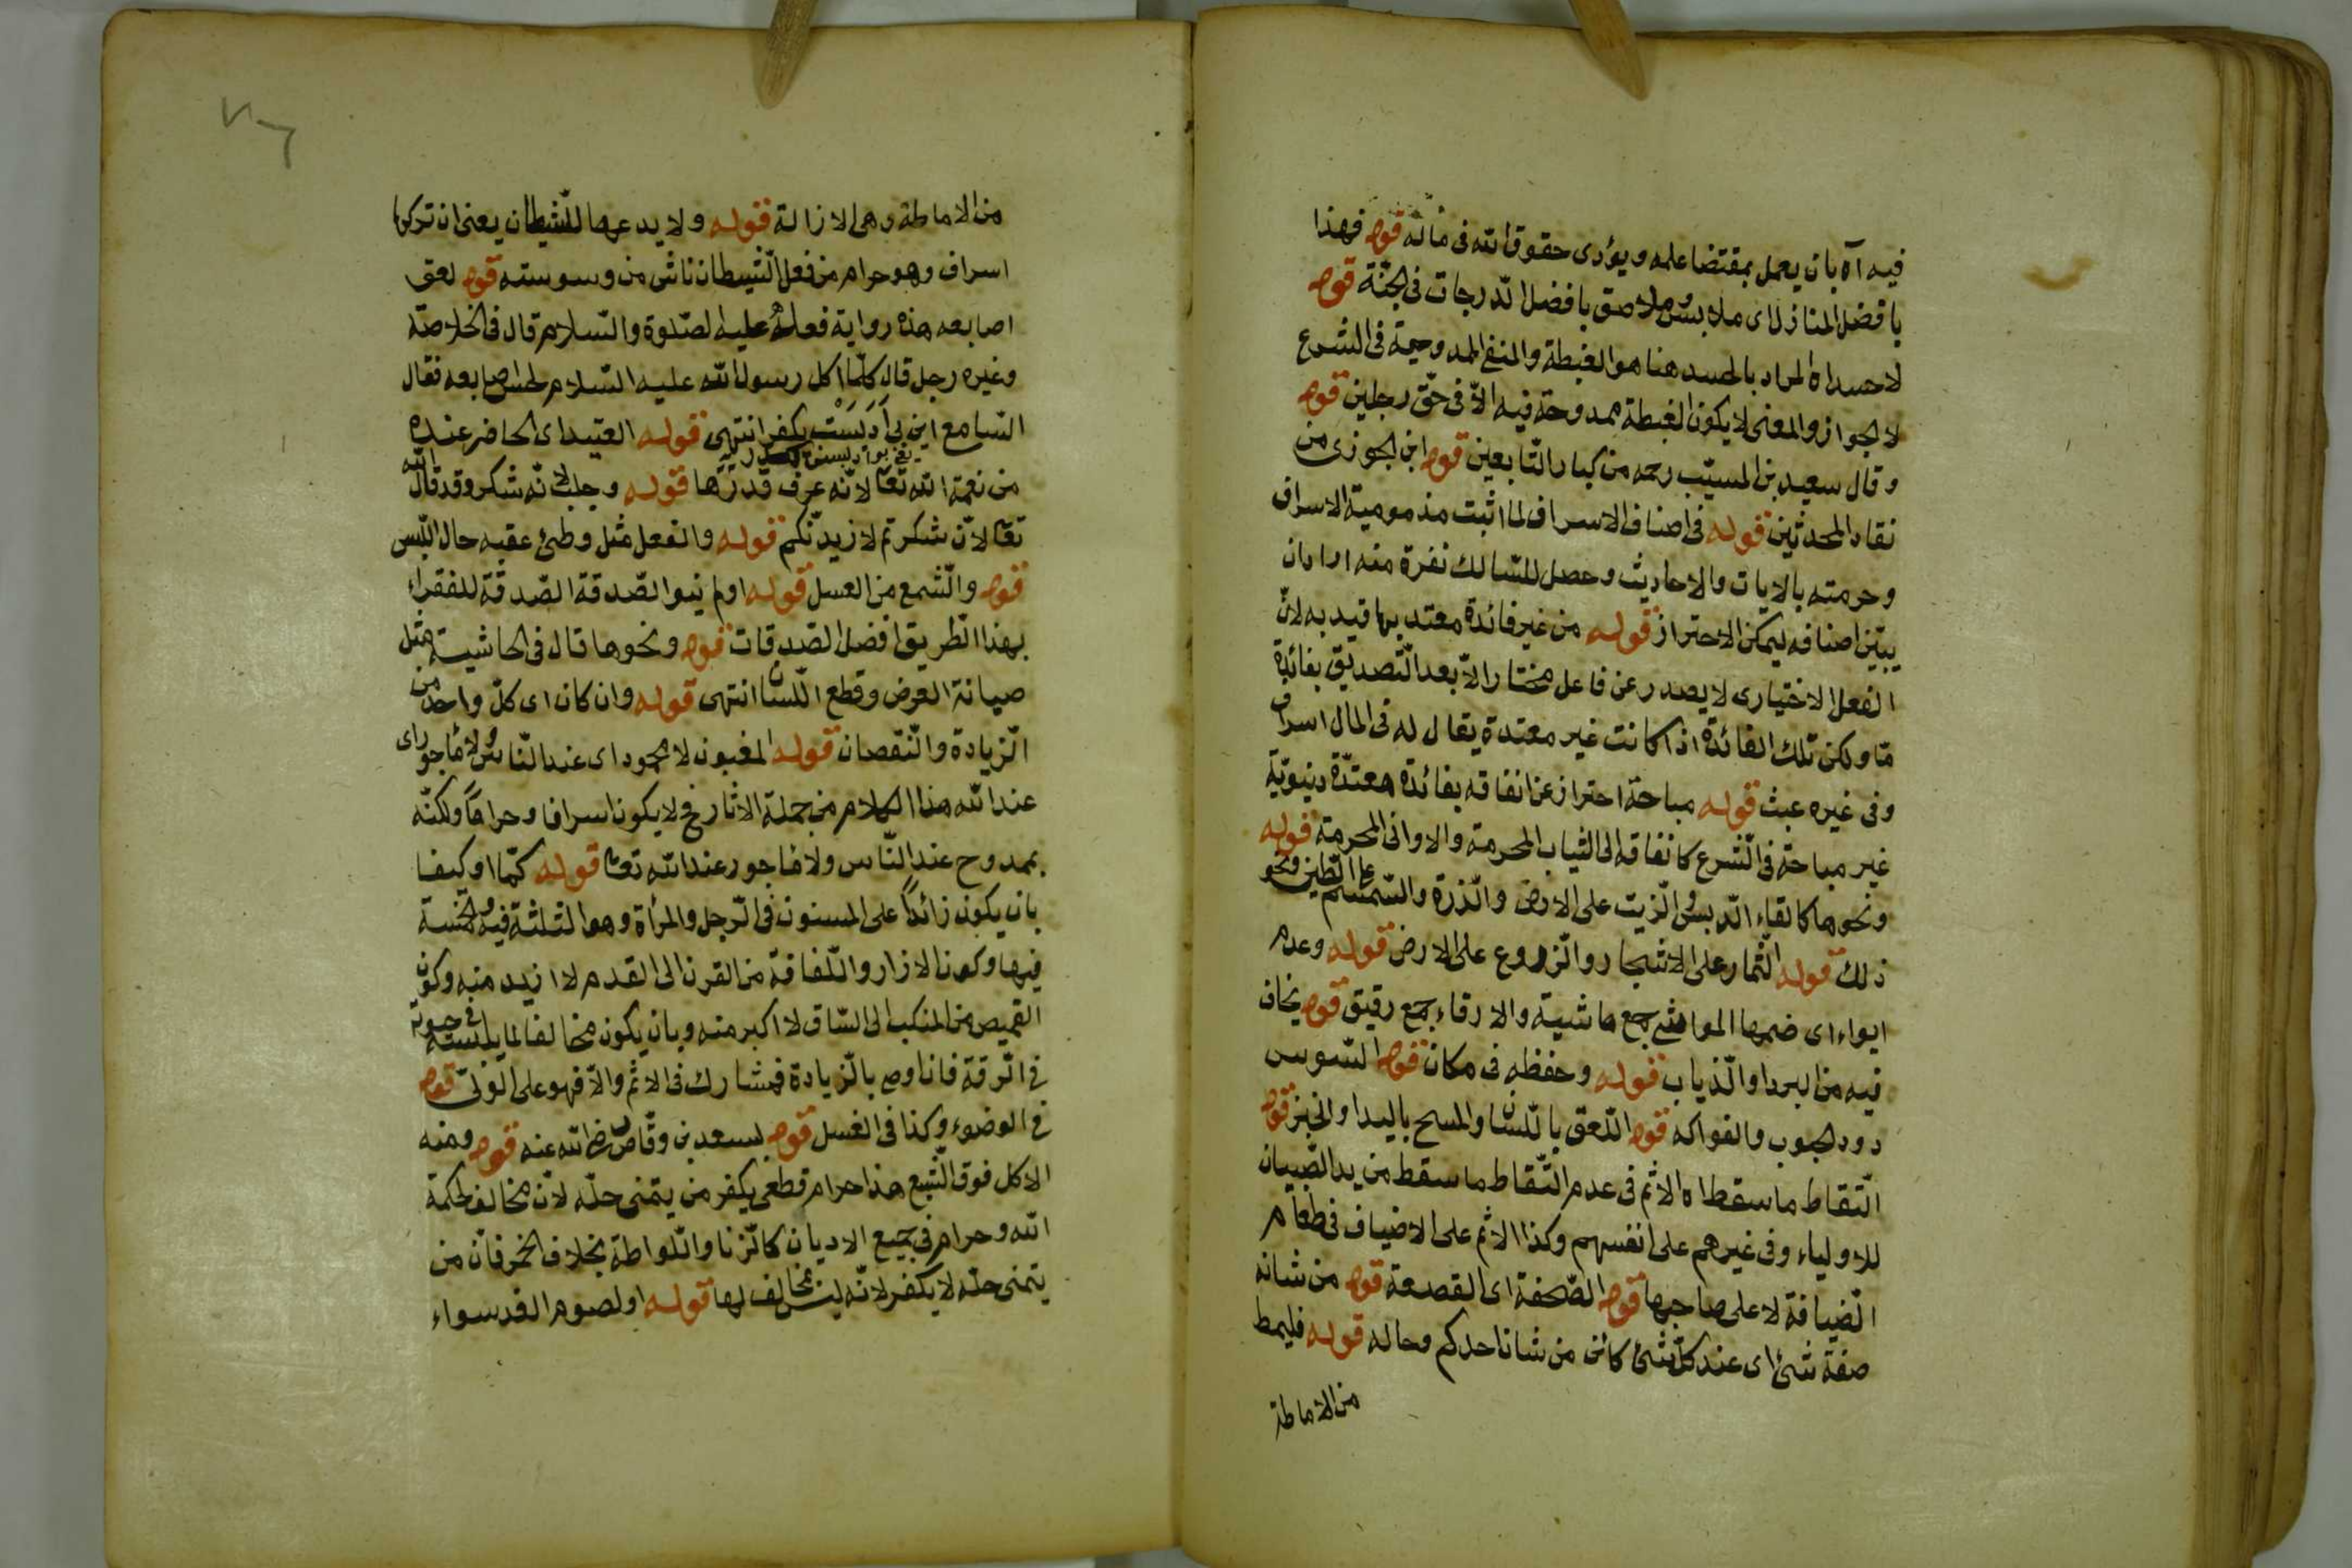 فيه آه بان يعمل بمقتضا علمه ويؤدى حقوق الله فى ماله قوله فهذا
بافضل المنازل اى ملابس وملاصق بافضل الدرجات فى الجنة قوله
لا حسد اه المراد بالحسد هنا هو الغبطة والمنفى الممدوحية فى الشرع
لا الجواز والمعنى لا يكون الغبطة ممدوحة فيه الا فى حق رجلين قوله
وقال سعيد بن المسيب رحمه من كبار التابعين قوله ابن الجوزى من
نقاد المحدثين قوله فى اصناف الاسراف لما اثبت مذمومية الاسراف
وحرمته بالايات والاحاديث وحصل للسالك نفرة منه اراد ان
يبين اصنافه ليمكن الاحتراز قوله من غير فائدة معتد بها قيد به لان
الفعل الاختيارى لا يصدر عن فاعل مختار الا بعد التصديق بفائدة
ما ولكن تلك الفائدة اذا كانت غير معتدة يقال له فى المال اسراف
وفى غيره عبث قوله مباحة احتراز عن انفاقه بفائدة معتدة دنيوية
غير مباحة فى الشرع كانفاقه الى الثياب المحرمة والاوانى المحرمة قوله
ونحوها كالقاء الدبس والزيت على الارض والذرة والسمسم على الطين ونحو
ذلك قوله الثمار على الاشجار والزروع على الارض قوله وعدم
ايواء اى ضمها المواشى جمع ماشية والارقاء جمع رقيق قوله يخاف
فيه من البرد او الذياب قوله وحفظه فى مكان قوله السوس
دود الحبوب والفواكه قوله اللعق باللسان والمسح باليد او الخبز قوله
التقاط ما سقط اه الاثم فى عدم التقاط ما سقط من يد الصبيان
للاولياء وفى غيرهم على انفسهم وكذا الاثم على الاضياف فى طعام
الضيافة لا على صاحبها قوله الصحفة اى القصعة قوله من شانه
صفة شئ اى عند كل شئ كائن من شان احدكم وحاله قوله فليمط
من الاماطة
من الاماطة وهى الازالة قوله ولا يدعها للشيطان يعنى ان تركها
اسراف وهو حرام من فعل الشيطان ناش من وسوسته قوله لعق
اصابعه هذه رواية فعله عليه الصلوة والسلام قال فى الخلاصة
وغيره رجل قال كلما اكل رسول الله عليه السلام لحس اصابعه فقال
السامع اين بى ادبست يكفر انتهى قوله العتيد اى الحاضر عنده
من نعمة الله تعا لانه عرف قدرها قوله وجلب لانه شكر وقد قال الله
تعا لان شكرتم لازيدنكم قوله والنعل مثل وطئ عقبه حال اللبس
قوله والشمع من العسل قوله اولم ينوا الصدقة الصدقة للفقراء
بهذا الطريق افضل الصدقات قوله ونحوها قال فى الحاشية مثل
صيانة العرض وقطع اللسان انتهى قوله وان كان اى كل واحد من
الزيادة والنقصان قوله المغبون لا محمود اى عند الناس ولا مأجور اى
عند الله هذا الكلام من جملة الاثار فح لا يكون اسرافا وحراما ولكنه
بممدوح عند الناس ولا مأجور عند الله تعا قوله كما او كيفا
بان يكون زائدا على المسنون فى الرجل والمرأة وهو الثلثة فيه والخمسة
فيها وكون الازار واللفافة من القرن الى القدم لا ازيد منه وكون
القميص من المنكب الى الساق لا اكبر منه وبان يكون مخالفا لما يلبسه فى حيوته
فى الرقة فان اوصى بالزيادة فمشارك فى الاثم والا فهو على الولى قوله
فى الوضوء وكذا فى الغسل قوله بسعد بن وقاص رضى الله عنه قوله ومنه
الاكل فوق الشبع هذا حرام قطعى يكفر من يتمنى حله لان مخالف لحكمة
الله وحرام فى جميع الاديان كالزنا واللواطة بخلاف الخمر فان من
يتمنى حله لا يكفر لانه ليس مخالف لها قوله او لصوم الغد سواء